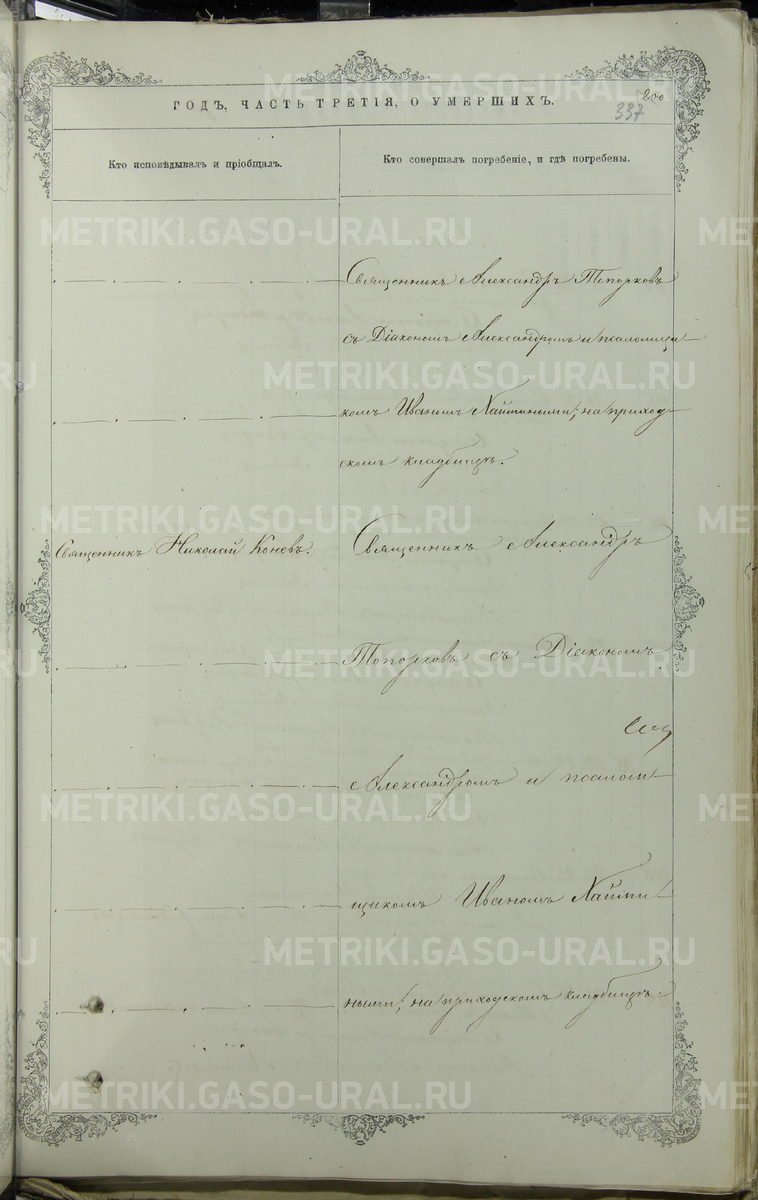 ГОДЪ, ЧАСТЬ ТРЕТІЯ, О УМЕРШИХЪ.
200
337
Кто исповѣдывалъ и пріобщалъ.
Кто совершалъ погребеніе, и гдѣ погребены.
Священникъ Александръ Топорковъ
съ Діакономъ Александромъ и псаломщи-
комъ Иваномъ Хайтиными; на приход-
скомъ кладбищѣ.
Священникъ Николай Коневъ.
Священникъ Александръ
Топорковъ съ Діакономъ
Александромъ и псалом-
щикомъ Иваномъ Хайти-
ными; на приходскомъ кладбищѣ.
METRIKI.GASO-URAL.RU